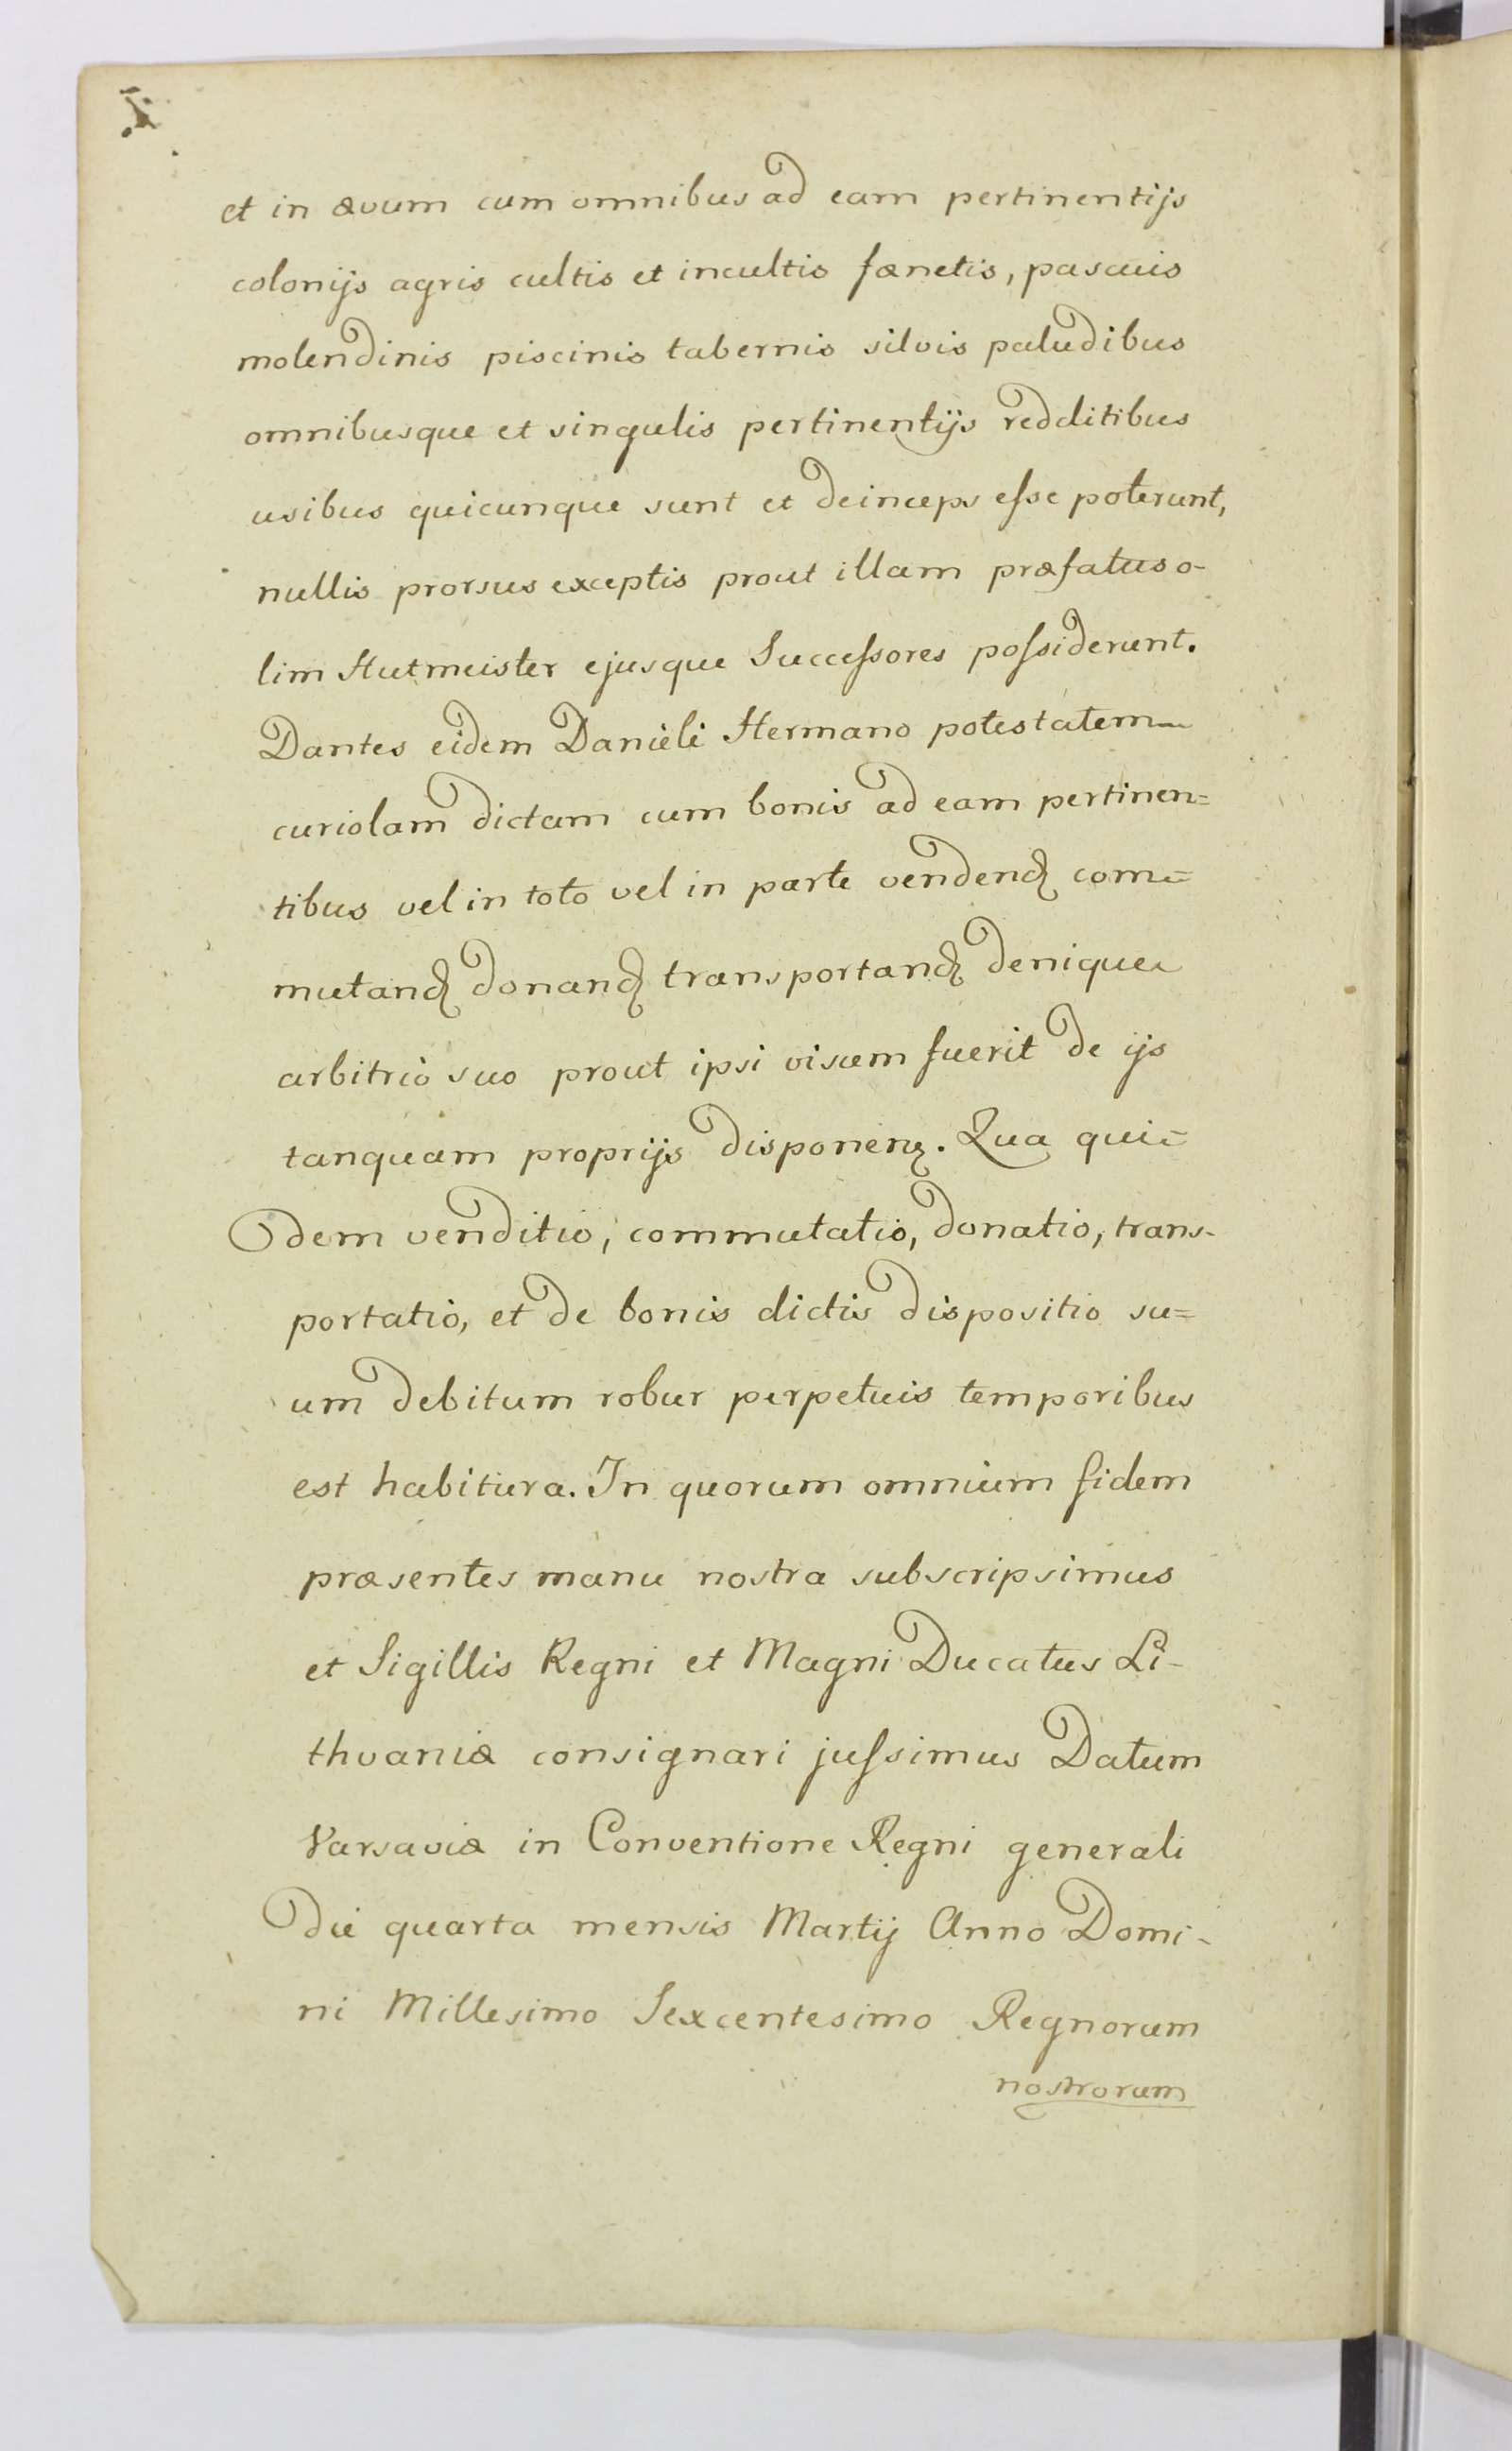 et in ævum cum omnibus ad eam pertinentijs
colonijs agris cultis et incultis fænetis, pascuis
molendinis piscinis tabernis silvis paludibus
omnibusque et singulis pertinentijs redditibus
usibus quicunque sunt et deinceps eſse poterunt,
nullis prorsus exceptis prout illam præfatus o-
lim Hutmeister ejusque Succeſsores poſsiderunt.
Dantes eidem Danieli Hermano potestatem
curiolam dictam cum bonis ad eam pertinen=
tibus vel in toto vel in parte vendenꝺ com=
mutanꝺ donanꝺ transportanꝺ denique
arbitrio suo prout ipsi visum fuerit de ijs
tanquam proprijs disponenꝺ. Qua qui=
dem venditio, commutatio, donatio, trans-
portatio, et de bonis dictis dispositio su=
um debitum robur perpetuis temporibus
est habitura. In quorum omnium fidem
præsentes manu nostra subscripsimus
et Sigillis Regni et Magni Ducatus Li-
thvaniæ consignari juſsimus Datum
Varsaviæ in Conventione Regni generali
die quarta mensis Martij Anno Domi-
ni Millesimo Sexcentesimo Regnorum
nostrorum